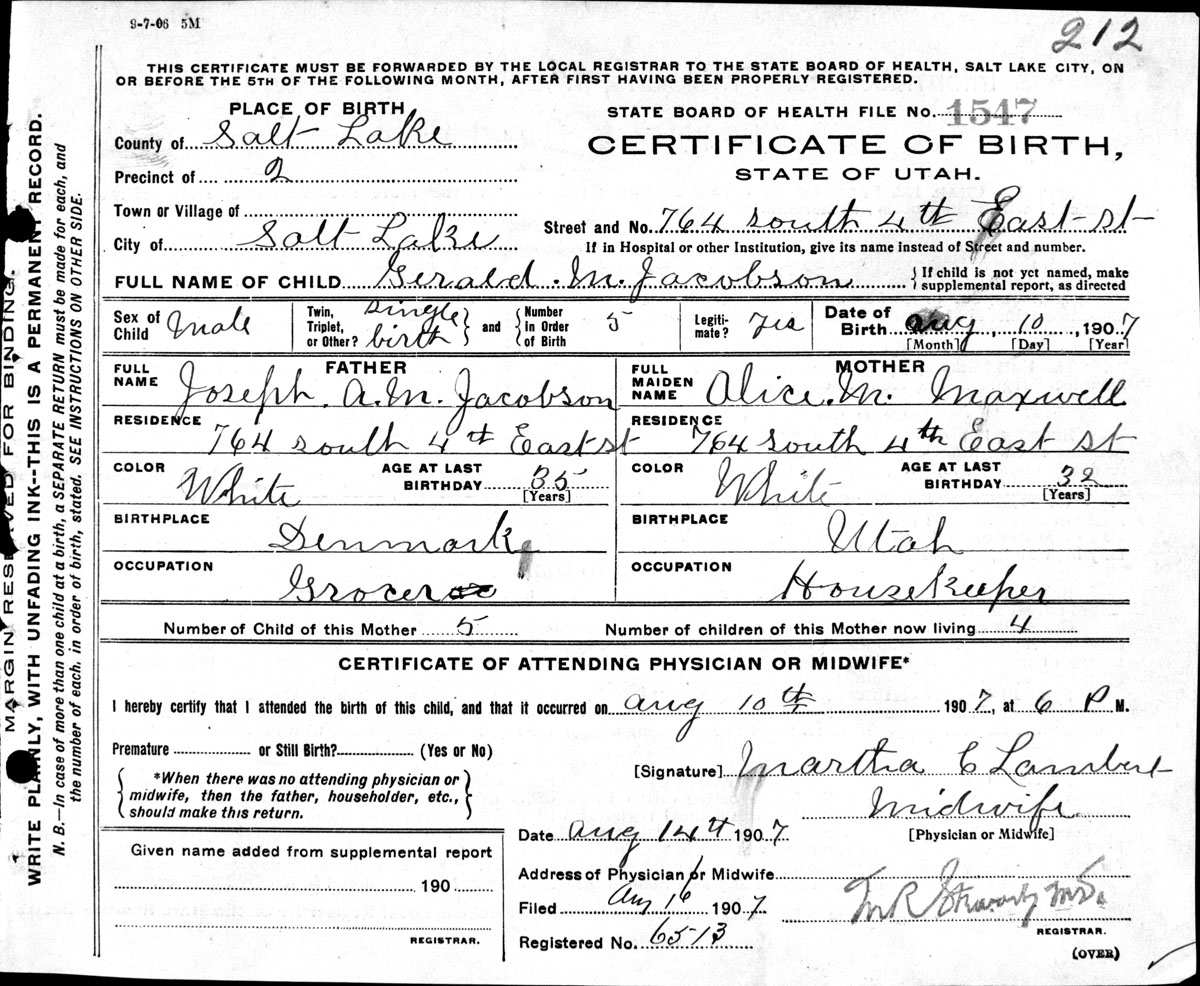 9-7-06 5M
212
THIS CERTIFICATE MUST BE FORWARDED BY THE LOCAL REGISTRAR TO THE STATE BOARD OF HEALTH, SALT LAKE CITY, ON
OR BEFORE THE 5TH OF THE FOLLOWING MONTH, AFTER FIRST HAVING BEEN PROPERLY REGISTERED.
PLACE OF BIRTH
County of Salt Lake
Precinct of 2
Town or Village of
City of Salt Lake
STATE BOARD OF HEALTH FILE No. 1547
CERTIFICATE OF BIRTH,
STATE OF UTAH.
Street and No. 764 South 4th East st
If in Hospital or other Institution, give its name instead of Street and number.
FULL NAME OF CHILD Gerald . M. Jacobson { If child is not yet named, make
supplemental report, as directed
Sex of Child Male
Twin, Triplet, or Other? single birth } and { Number in Order of Birth 5
Legiti-mate? Yes
Date of Birth aug, 10, 1907
[Month] [Day] [Year]
FATHER
FULL NAME Joseph. A. M. Jacobson
RESIDENCE 764 south 4th East st
COLOR White AGE AT LAST BIRTHDAY 35 [Years]
BIRTHPLACE Denmark
OCCUPATION Grocer
MOTHER
FULL MAIDEN NAME Alice. M. Maxwell
RESIDENCE 764 South 4th East st
COLOR White AGE AT LAST BIRTHDAY 32 [Years]
BIRTHPLACE Utah
OCCUPATION Housekeeper
Number of Child of this Mother 5 Number of children of this Mother now living 4
CERTIFICATE OF ATTENDING PHYSICIAN OR MIDWIFE*
I hereby certify that I attended the birth of this child, and that it occurred on aug 10th 1907, at 6 P M.
Premature or Still Birth? (Yes or No)
{ *When there was no attending physician or
midwife, then the father, householder, etc.,
should make this return. }
[Signature] Martha C Lambert
Midwife
[Physician or Midwife]
Date aug 14th 1907
Given name added from supplemental report
190
REGISTRAR.
Address of Physician or Midwife
Filed Aug 16 1907
M.D.
REGISTRAR.
Registered No. 6513
(OVER)
MARGIN RESERVED FOR BINDING.
WRITE PLAINLY, WITH UNFADING INK--THIS IS A PERMANENT RECORD.
N. B.—In case of more than one child at a birth, a SEPARATE RETURN must be made for each, and
the number of each, in order of birth, stated. SEE INSTRUCTIONS ON OTHER SIDE.